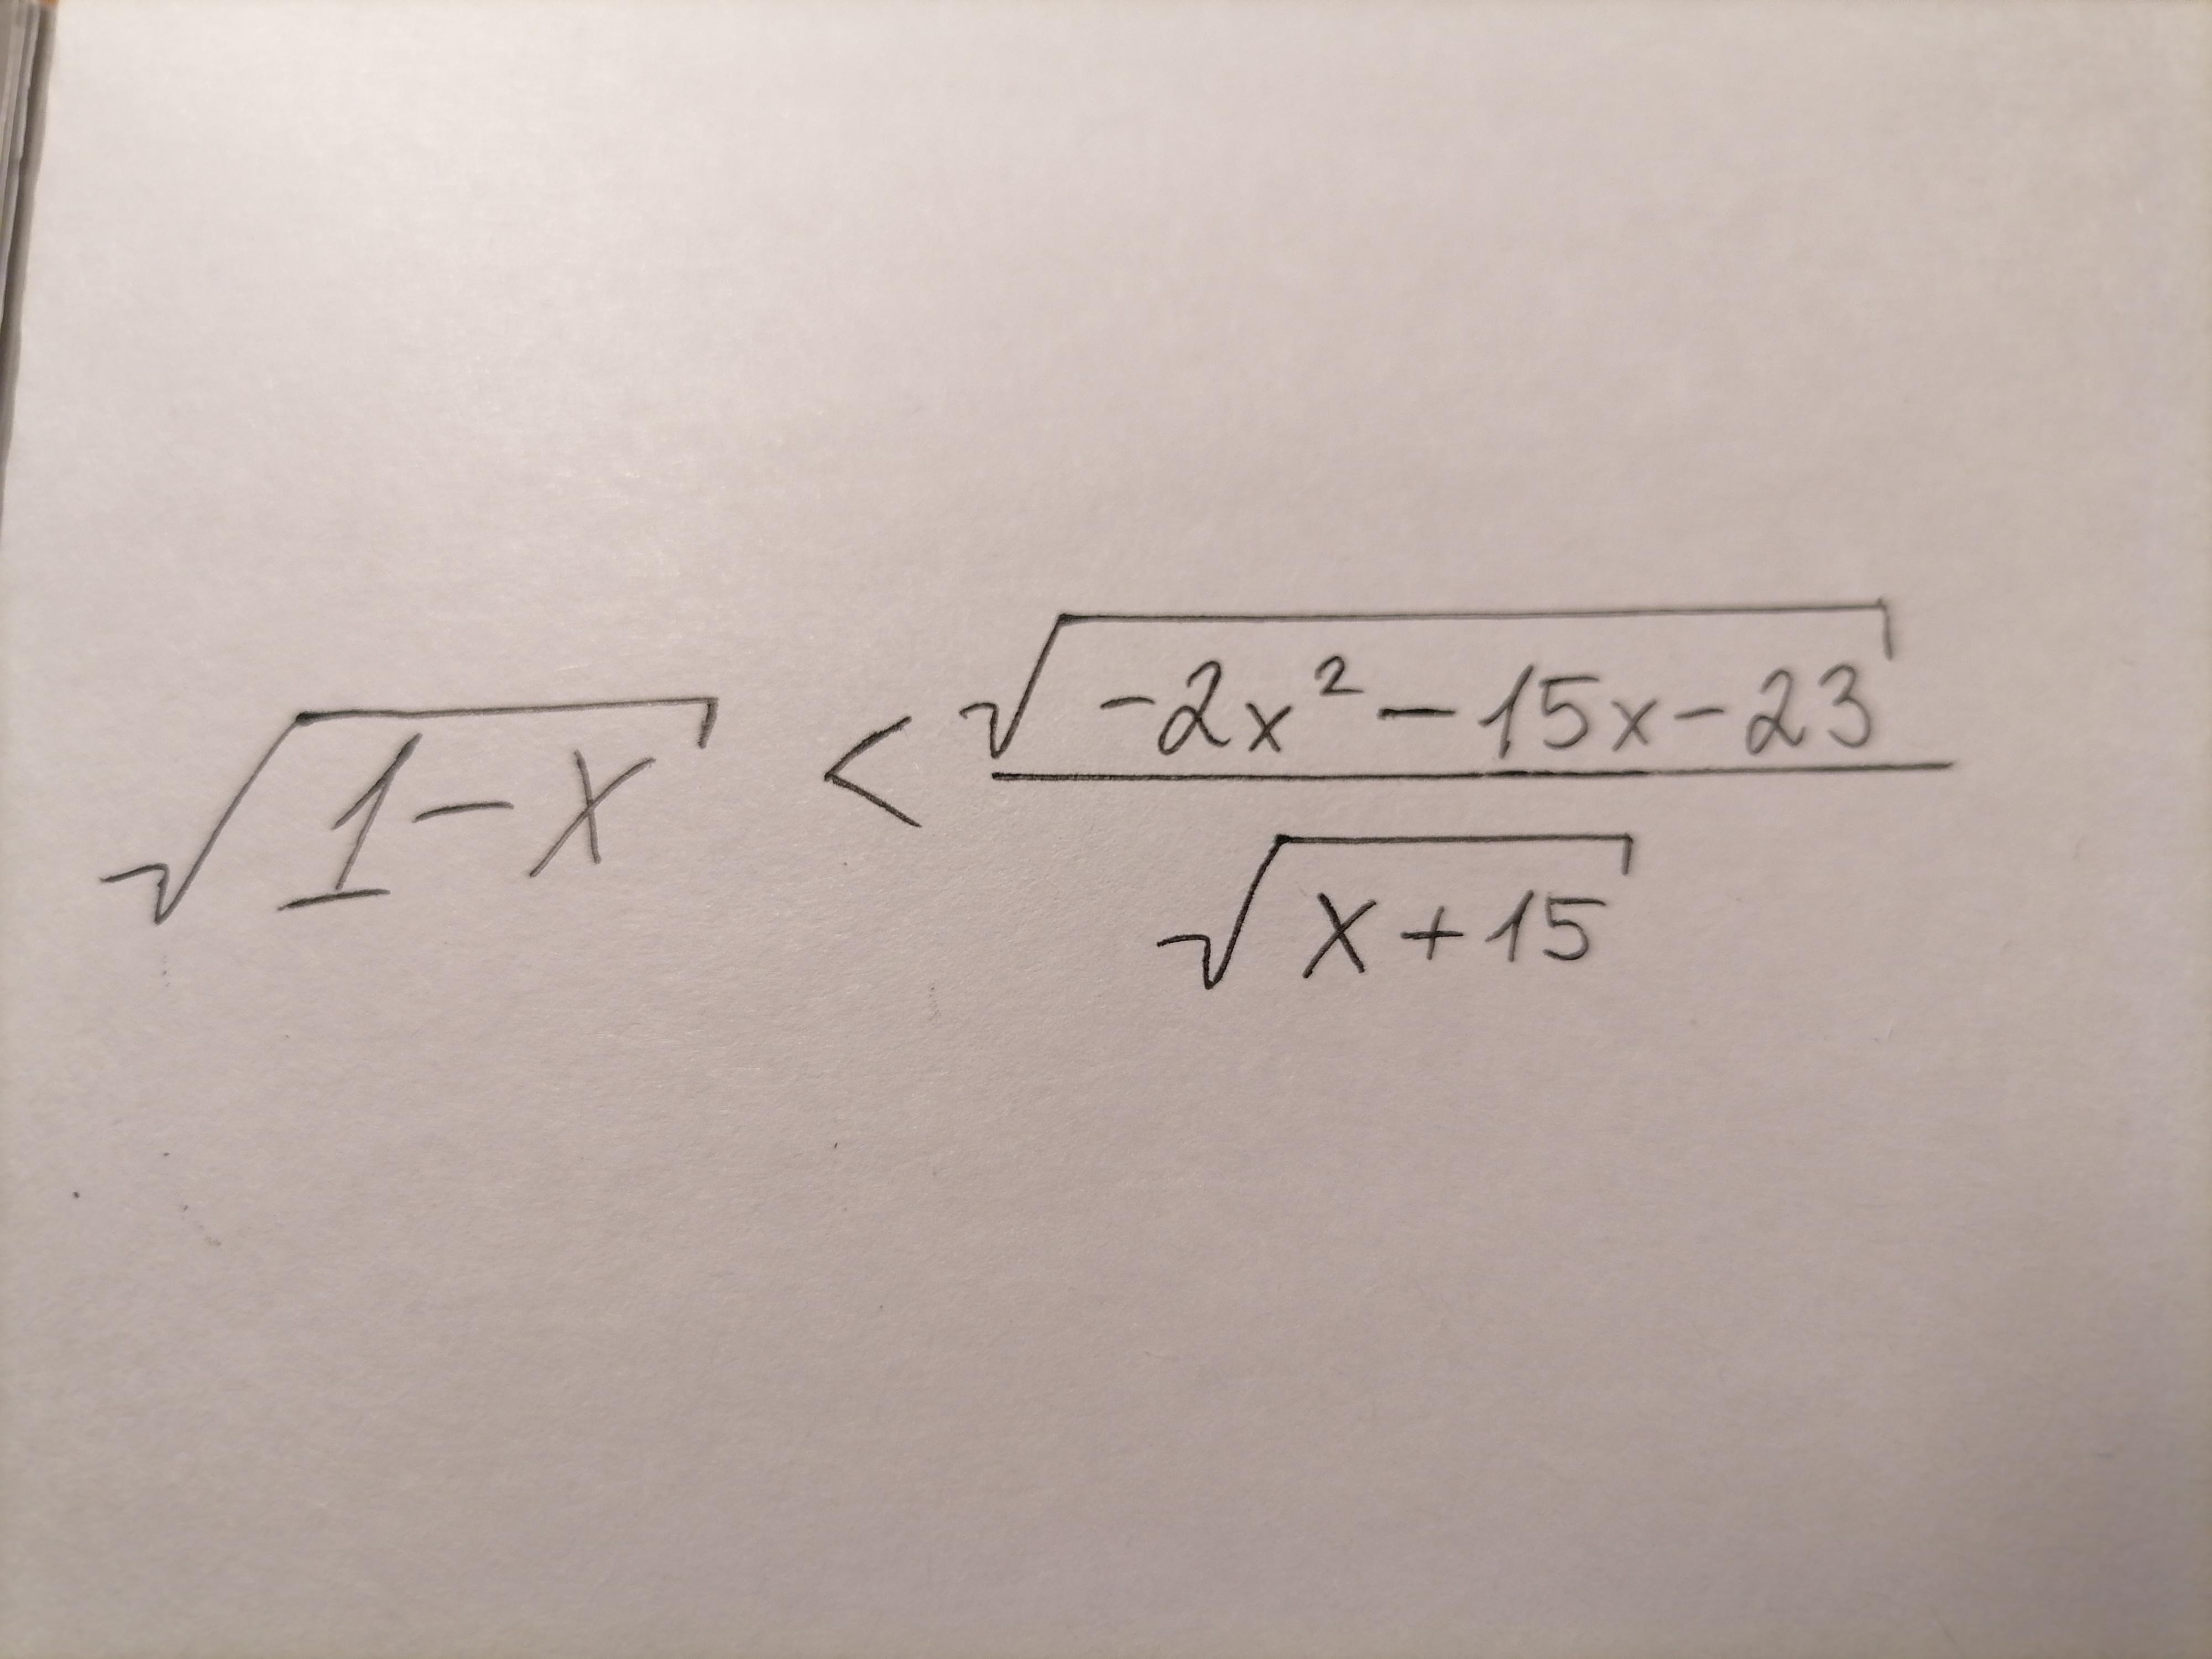 √(1-x) < √(-2x²-15x-23) / √(x+15)